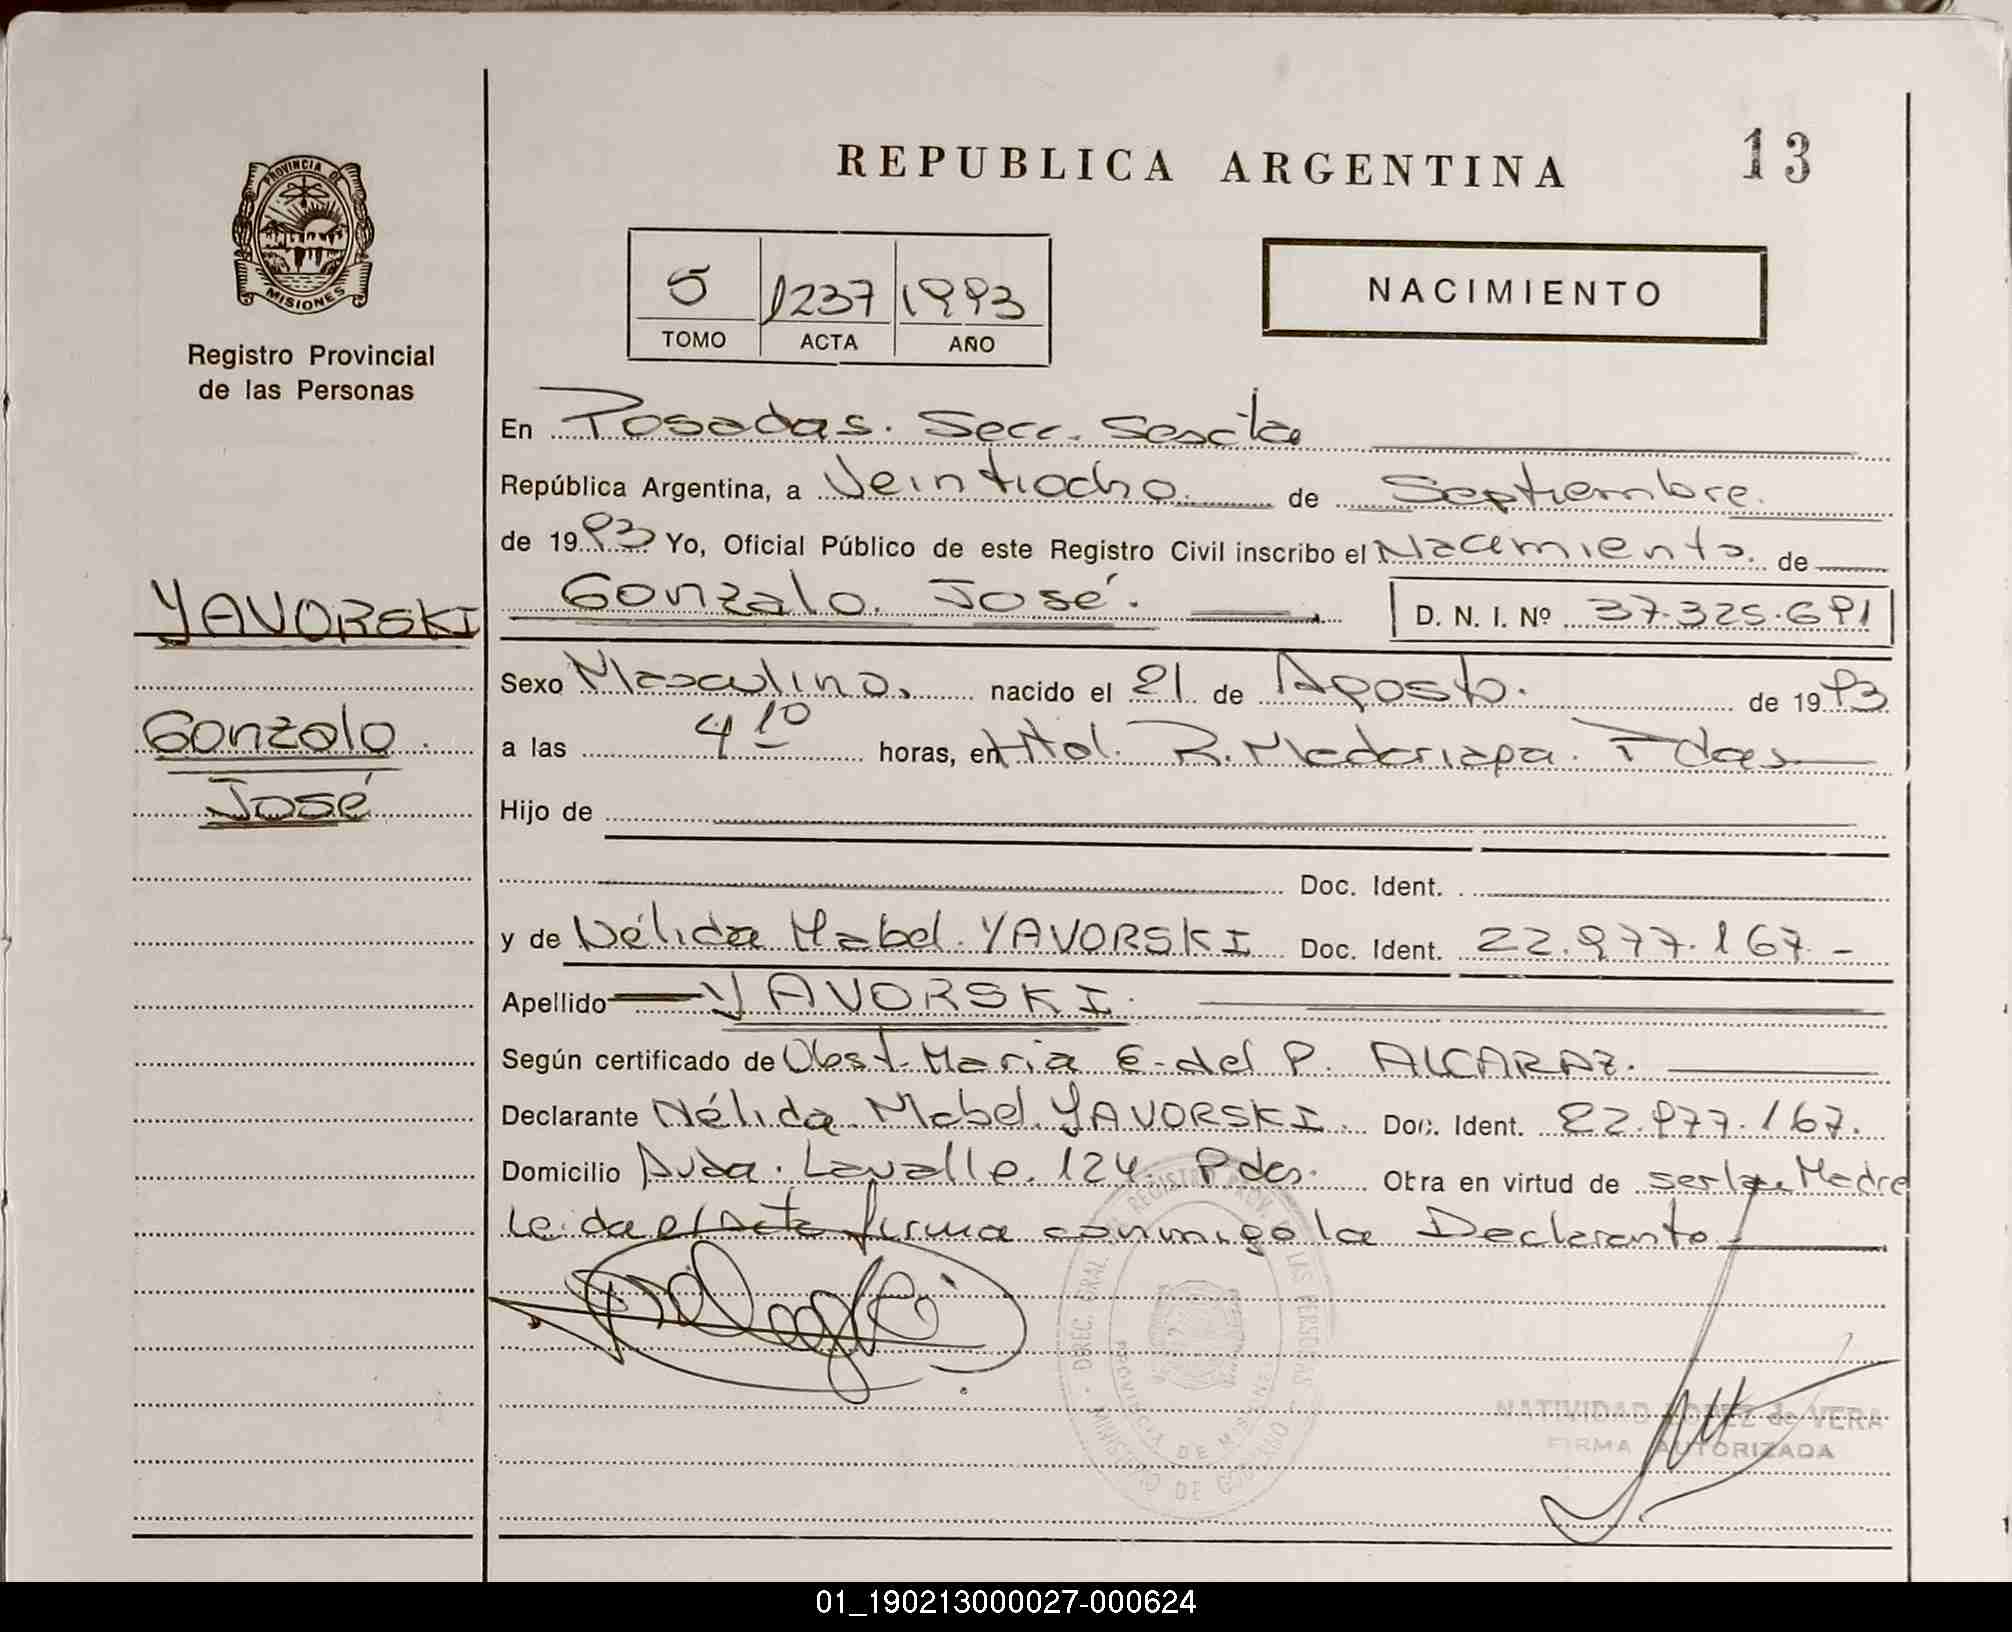 REPUBLICA ARGENTINA
13
PROVINCIA DE
MISIONES
Registro Provincial
de las Personas
5 1237 1993
TOMO ACTA AÑO
NACIMIENTO
En Posadas. Secc. Sexta
República Argentina, a Veintiocho de Septiembre.
de 1993 Yo, Oficial Público de este Registro Civil inscribo el Nacimiento. de
YAVORSKI
Gonzalo José
Gonzalo. José. D. N. I. Nº 37.325.691
Sexo Masculino. nacido el 21 de Agosto. de 1993
a las 4 10 horas, en Htal. R. Madariaga. Pdas
Hijo de
Doc. Ident.
y de Nélida Mabel. YAVORSKI Doc. Ident. 22.977.167.-
Apellido YAVORSKI.
Según certificado de Obst. María E. del P. ALCARAZ.
Declarante Nélida Mabel YAVORSKI. Doc. Ident. 22.977.167.
Domicilio Avda. Lavalle. 124. Pdas. Obra en virtud de ser la Madre
Leida el Acta firma conmigo la Declarante
DIREC. GRAL. REGISTRO PROV. DE LAS PERSONAS
PROVINCIA DE MISIONES
MINISTERIO DE GOBIERNO
NATIVIDAD LOPEZ de VERA
FIRMA AUTORIZADA
01_190213000027-000624